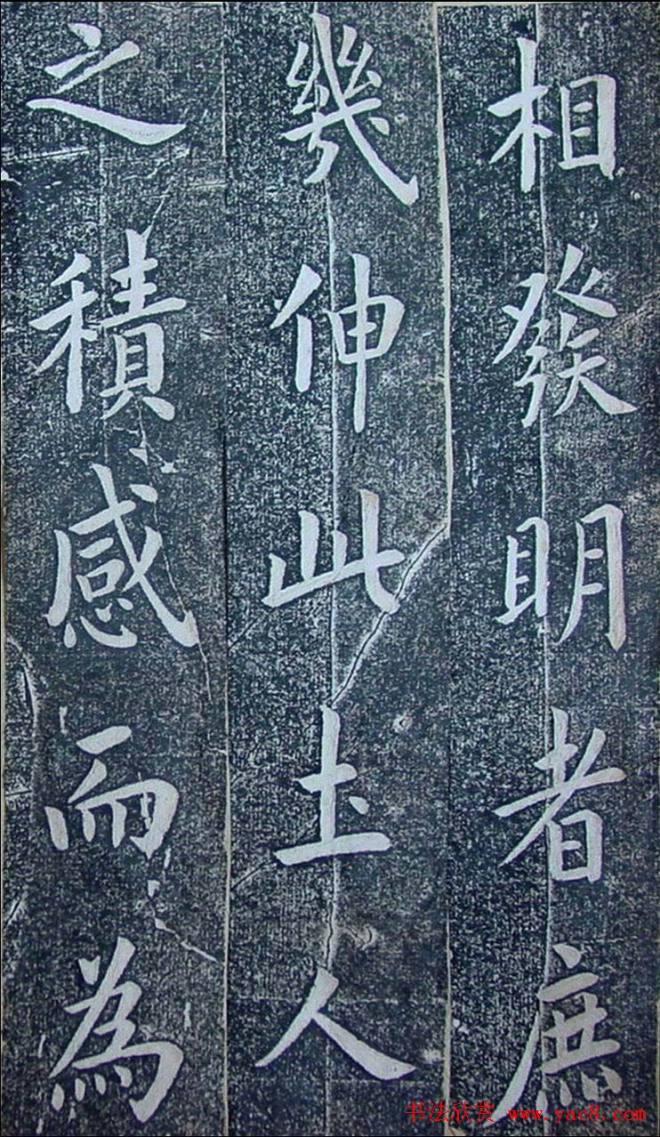 相發明者庶
幾伸此土人
之積感而為
书法欣赏 www.yac8.com